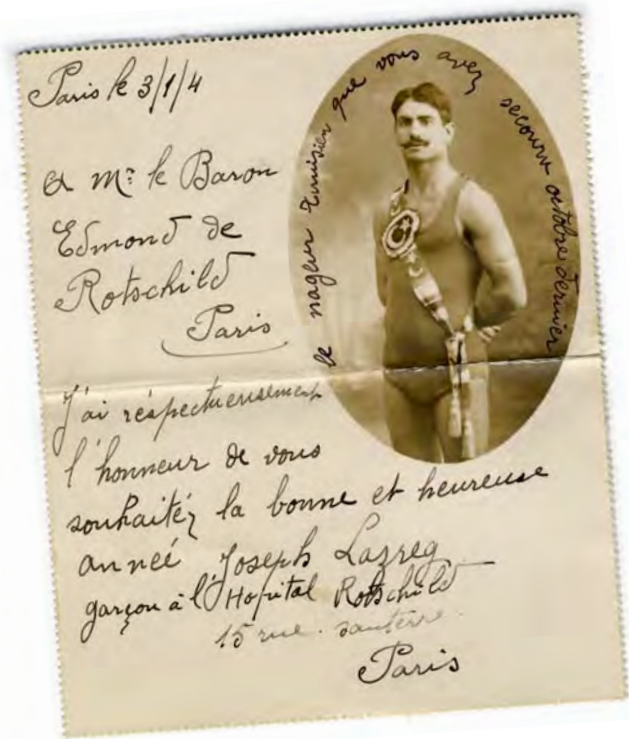 Paris le 3/1/4
a Mr le Baron
Edmond de
Rotschild
Paris
le nageur Tunisien que vous avez secouru octobre dernier
J'ai réspectueusement
l'honneur de vous
souhaitéz la bonne et heureuse
anneé Joseph Lazreg
garçon à l'Hopital Rotschild
15 rue. santerre.
Paris